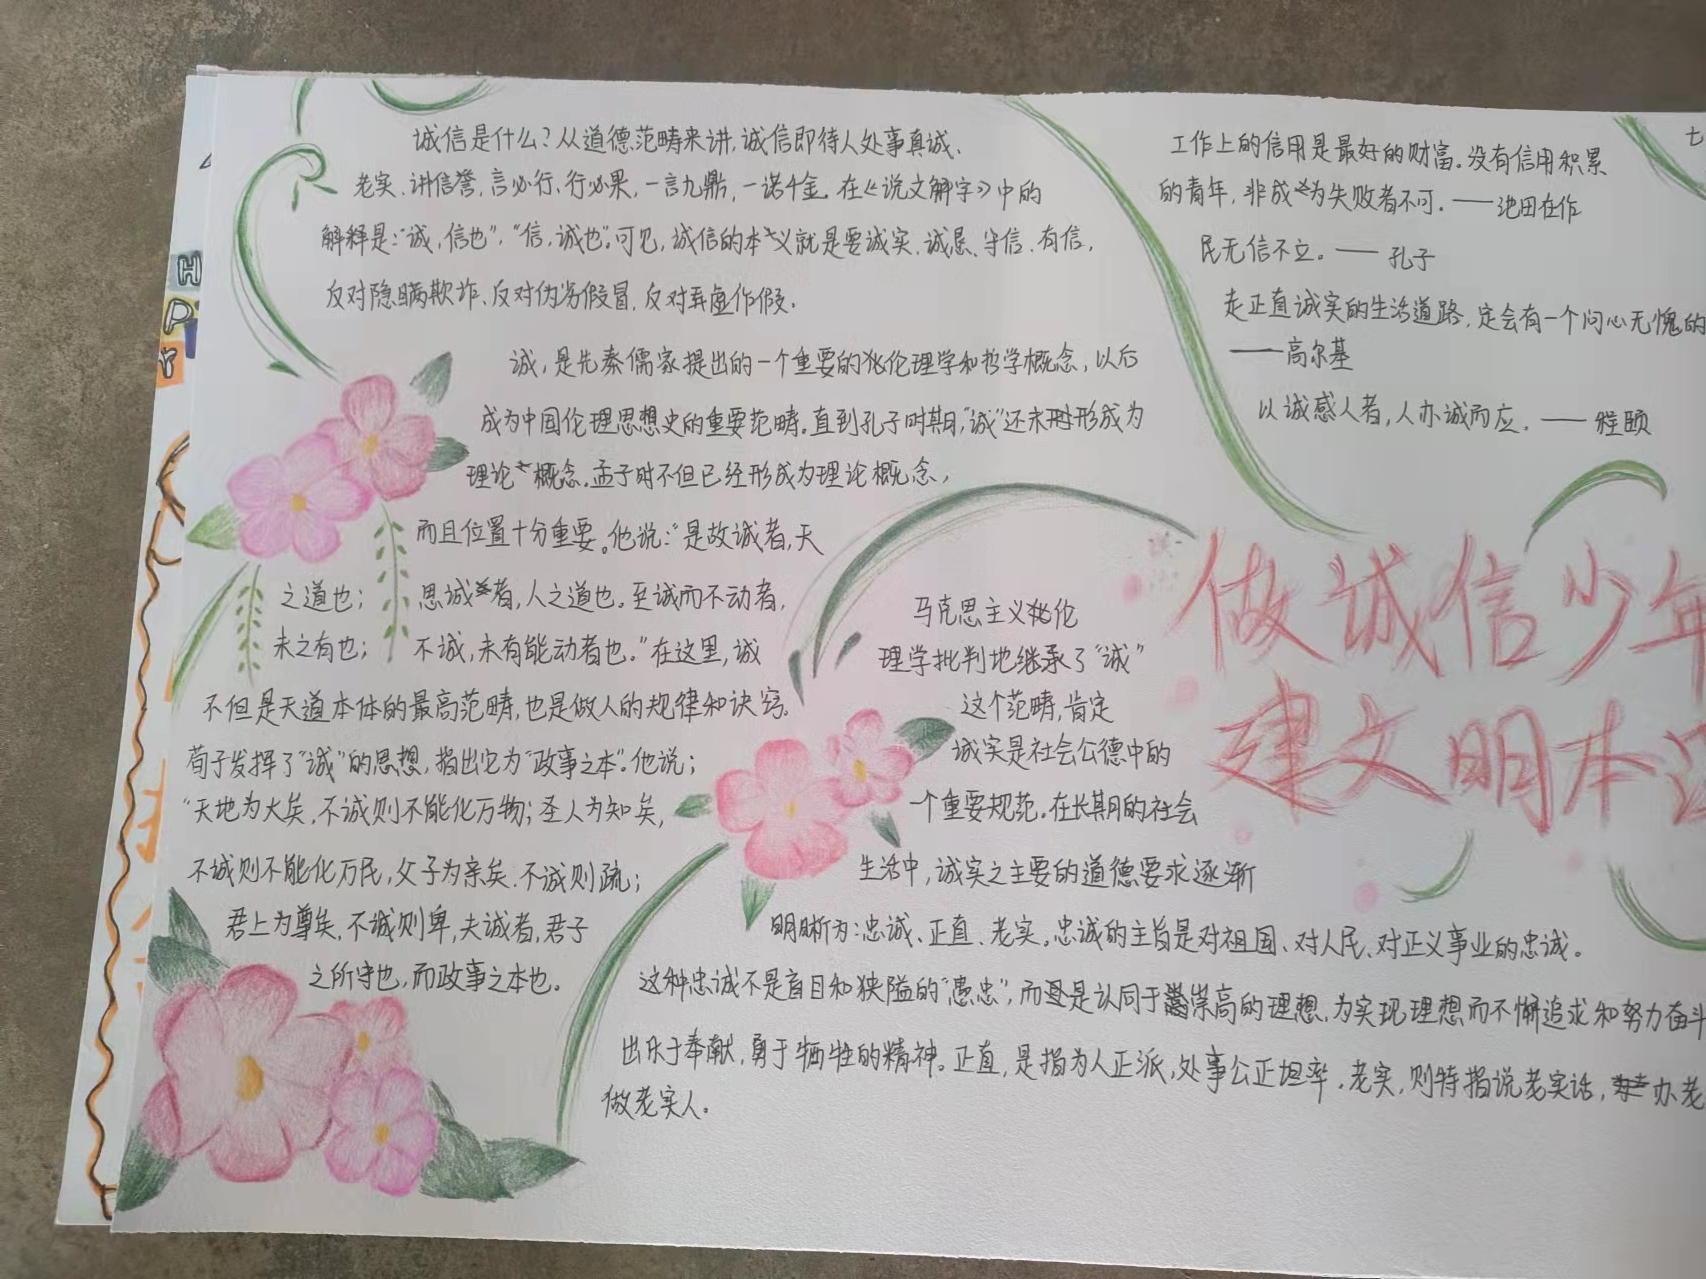 诚信是什么？从道德范畴来讲，诚信即待人处事真诚、
老实、讲信誉，言必行、行必果，一言九鼎，一诺千金。在《说文解字》中的
解释是：“诚，信也”，“信，诚也”。可见，诚信的本义就是要诚实、诚恳、守信、有信，
反对隐瞒欺诈、反对伪劣假冒，反对弄虚作假。
诚，是先秦儒家提出的一个重要的伦理学和哲学概念，以后
成为中国伦理思想史的重要范畴。直到孔子时期，“诚”还未形成为
理论概念。孟子时不但已经形成为理论概念，
而且位置十分重要。他说：“是故诚者，天
之道也；思诚者，人之道也。至诚而不动者，
未之有也；不诚，未有能动者也。”在这里，诚
不但是天道本体的最高范畴，也是做人的规律和诀窍。
荀子发挥了“诚”的思想，指出它为“政事之本”。他说；
“天地为大矣，不诚则不能化万物；圣人为知矣，
不诚则不能化万民，父子为亲矣，不诚则疏；
君上为尊矣，不诚则卑，夫诚者，君子
之所守也，而政事之本也。
马克思主义伦
理学批判地继承了“诚”
这个范畴，肯定
诚实是社会公德中的
一个重要规范。在长期的社会
生活中，诚实之主要的道德要求逐渐
明晰为：忠诚、正直、老实。忠诚的主旨是对祖国、对人民、对正义事业的忠诚。
这种忠诚不是盲目和狭隘的“愚忠”，而是认同于崇高的理想，为实现理想而不懈追求和努力奋斗
出乐于奉献，勇于牺牲的精神。正直，是指为人正派，处事公正坦率。老实，则特指说老实话，办老
做老实人。
工作上的信用是最好的财富。没有信用积累
的青年，非成为失败者不可。——池田在作
民无信不立。——孔子
走正直诚实的生活道路，定会有一个问心无愧的
——高尔基
以诚感人者，人亦诚而应。——程颐
七
做诚信少年
建文明本
H
P
Y